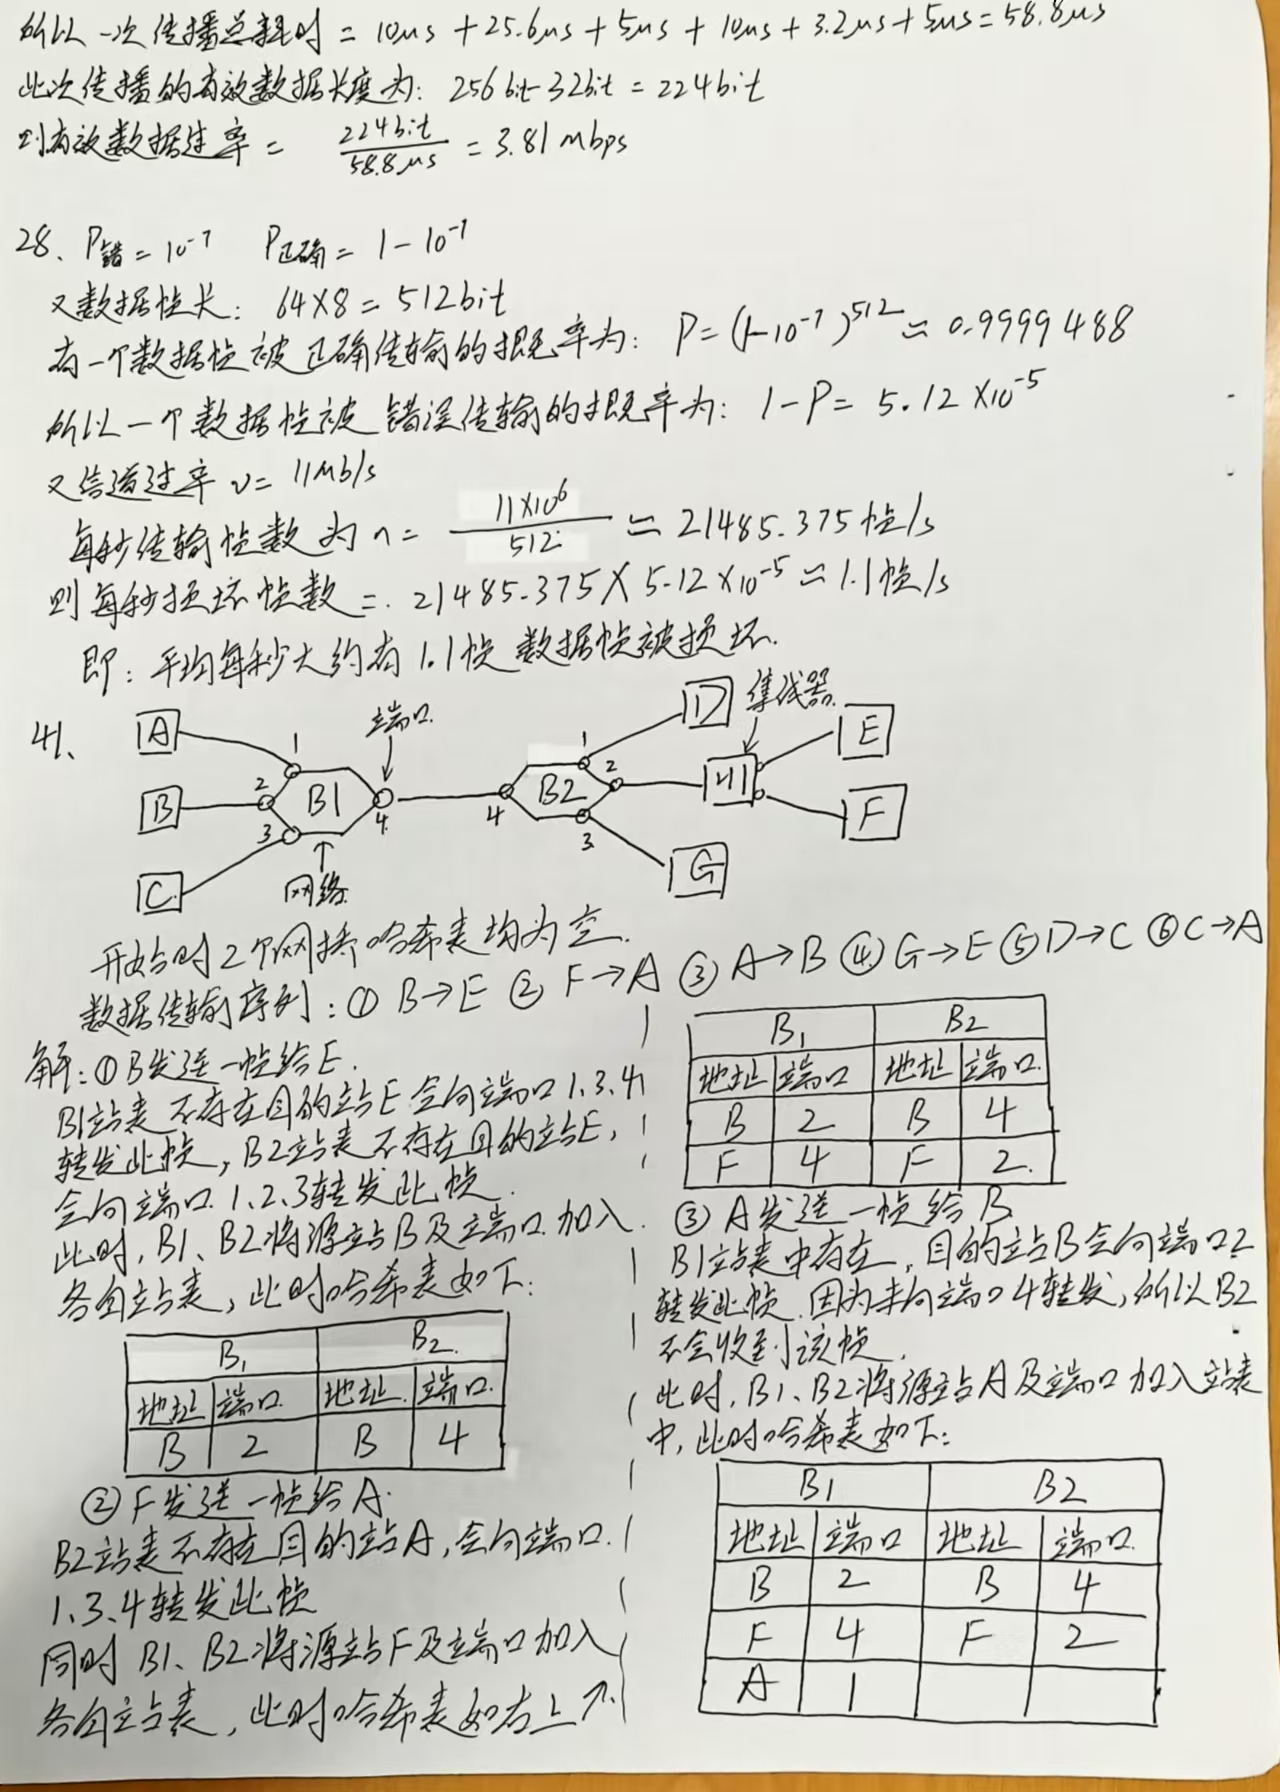 所以一次传播总耗时 = 10μs + 25.6μs + 5μs + 10μs + 3.2μs + 5μs = 58.8μs
此次传播的有效数据长度为: 256bit - 32bit = 224bit
则有效数据速率 = 224bit / 58.8μs = 3.81 Mbps
28、P错 = 10⁻⁷ P正确 = 1 - 10⁻⁷
又数据帧长: 64×8 = 512bit
有一个数据帧被正确传输的概率为: P = (1-10⁻⁷)⁵¹² ≈ 0.9999488
所以一个数据帧被错误传输的概率为: 1-P = 5.12×10⁻⁵
又信道速率 v = 11Mb/s
每秒传输帧数为 n = 11×10⁶ / 512 ≈ 21485.375帧/s
则每秒损坏帧数 = 21485.375 × 5.12×10⁻⁵ ≈ 1.1帧/s
即: 平均每秒大约有1.1帧数据帧被损坏.
41、
A
B
C
1
2
3
4
B1
端口
网络
4
1
2
3
B2
D
集线器
H1
E
F
G
开始时2个网桥哈希表均为空.
数据传输序列: ① B→E ② F→A ③ A→B ④ G→E ⑤ D→C ⑥ C→A
解: ①B发送一帧给E.
B1站表不存在目的站E会向端口1.3.4
转发此帧, B2站表不存在目的站E,
会向端口1.2.3转发此帧.
此时, B1、B2将源站B及端口加入
各自站表, 此时哈希表如下:
B₁ B₂
地址 端口 地址 端口
B 2 B 4
②F发送一帧给A.
B2站表不存在目的站A, 会向端口
1、3、4转发此帧
同时B1、B2将源站F及端口加入
各自站表, 此时哈希表如右上↗
B₁ B₂
地址 端口 地址 端口
B 2 B 4
F 4 F 2
③ A发送一帧给B
B1站表中存在, 目的站B会向端口2
转发此帧. 因为未向端口4转发, 所以B2
不会收到该帧.
此时, B1、B2将源站A及端口加入站表
中, 此时哈希表如下:
B1 B2
地址 端口 地址 端口
B 2 B 4
F 4 F 2
A 1